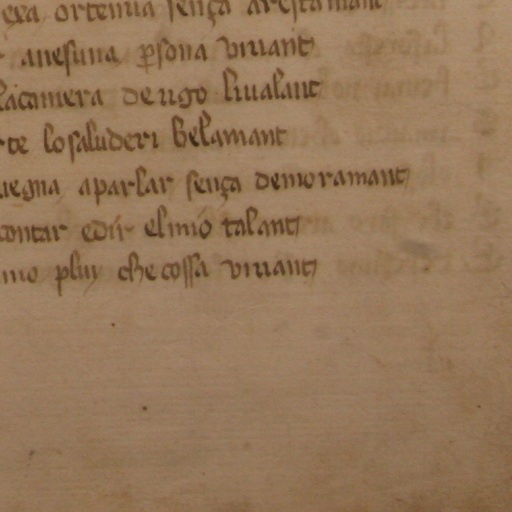 exa ortenuta sença arestamant
anesuna p̱sona viuant
la camera de ugo liualant
te lo saluderi belamant
uegna aparlar sença demoramant
contar edir el mio talant
mo pluy che cossa viuant